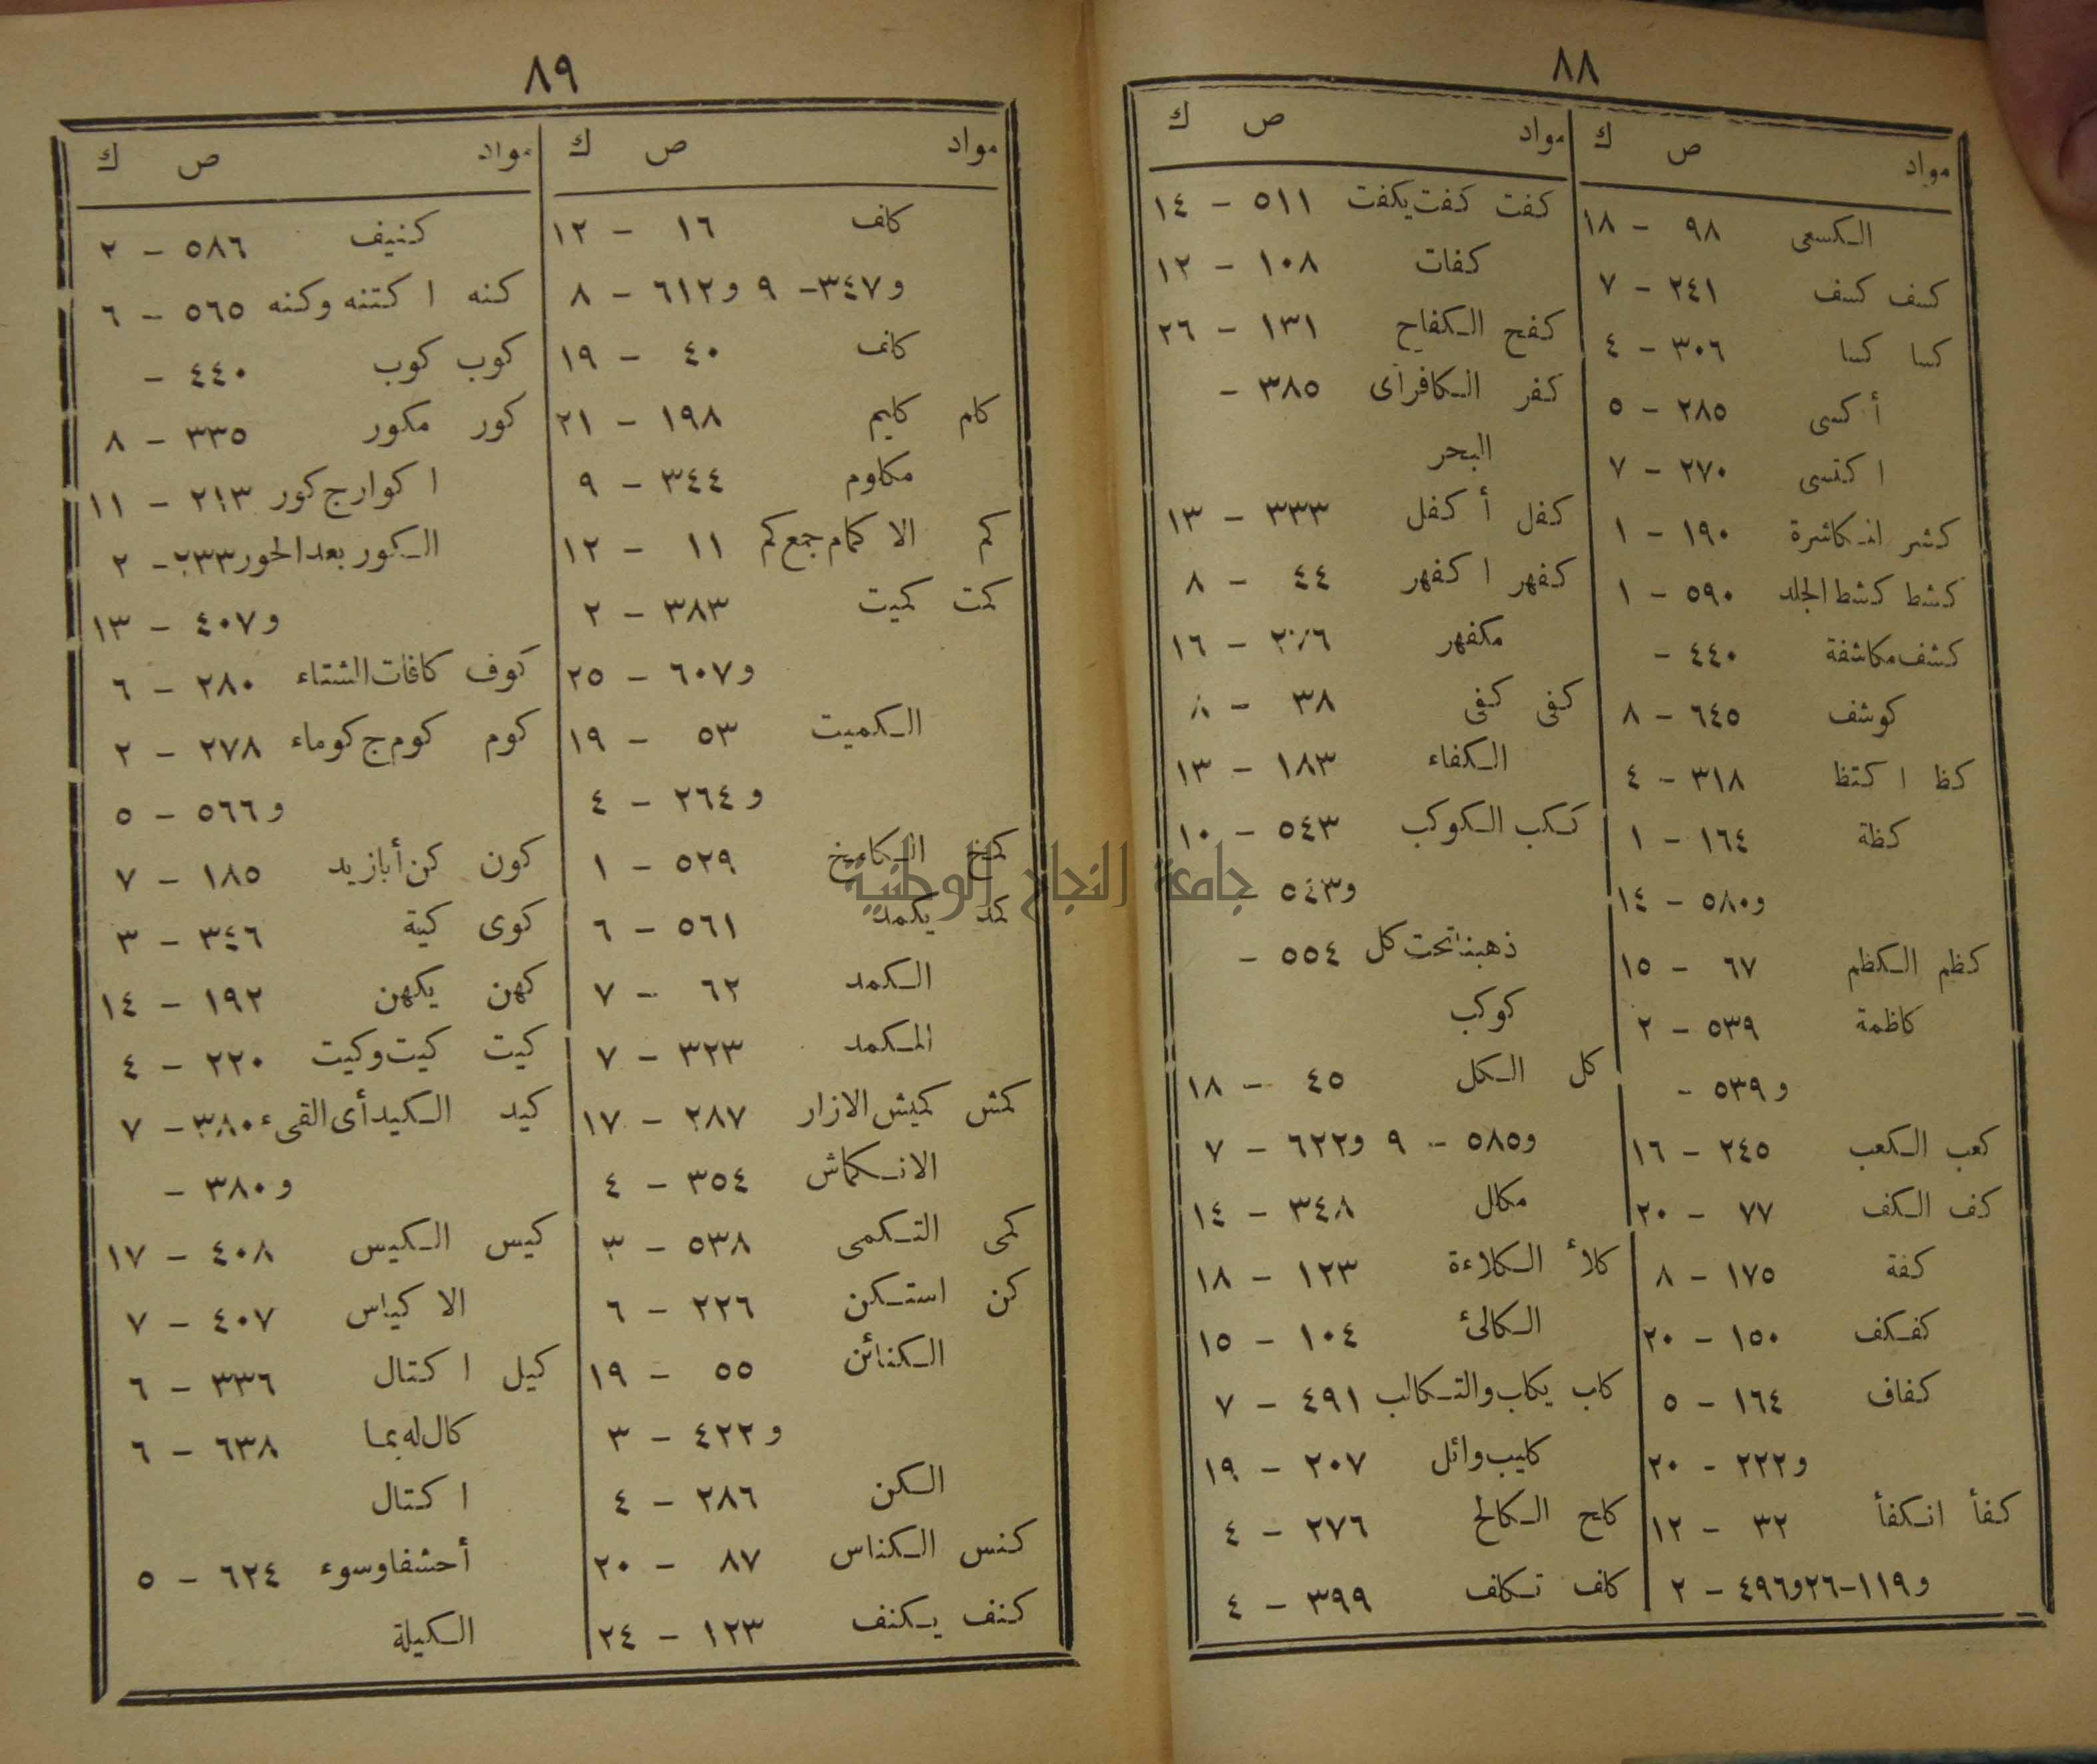 ٨٨
مواد ص ك
الكسعى ٩٨ - ١٨
كسف كسف ٢٤١ - ٧
كسا كسا ٣٠٦ - ٤
أكسى ٢٨٥ - ٥
اكتسى ٢٧٠ - ٧
كشر المكاشرة ١٩٠ - ١
كشط كشط الجلد ٥٩٠ - ١
كشف مكاشفة ٤٤٠ -
كوشف ٦٤٥ - ٨
كظ اكتظ ٣١٨ - ٤
كظة ١٦٤ - ١
و٥٨٠ - ١٤
كظم الكظم ٦٧ - ١٥
كاظمة ٥٣٩ - ٢
و٥٣٩ -
كعب الكعب ٢٤٥ - ١٦
كف الكف ٧٧ - ٢٠
كفة ١٧٥ - ٨
كفكف ١٥٠ - ٢٠
كفاف ١٦٤ - ٥
و٢٢٢ - ٢٠
كفأ انكفأ ٣٢ - ١٢
و١١٩-٢٦و٤٩٦ - ٢
مواد ص ك
كفت كفت يكفت ٥١١ - ١٤
كفات ١٠٨ - ١٢
كفح الكفاح ١٣١ - ٢٦
كفر الكافر أى ٣٨٥ -
البحر
كفل أكفل ٣٣٣ - ١٣
كفهر اكفهر ٤٤ - ٨
مكفهر - ١٦
كفى كفى ٣٨ - ٨
الكفاء ١٨٣ - ١٣
ككب الكوكب ٥٤٣ - ١٠
و٥٤٣ -
ذهبنا تحت كل ٥٥٤ -
كوكب
كل الكل ٤٥ - ١٨
و٥٨٥ - ٩ و٦٢٢ - ٧
مكال ٣٤٨ - ١٤
كلأ الكلاءة ١٢٣ - ١٨
الكالئ ١٠٤ - ١٥
كلب يكلب والتكالب ٤٩١ - ٧
كليب وائل ٢٠٧ - ١٩
كلح الكالح ٢٧٦ - ٤
كلف تكلف ٣٩٩ - ٤
٨٩
مواد ص ك
كلف ١٦ - ١٢
و٣٤٧- ٩ و٦١٢ - ٨
كلف ٤٠ - ١٩
كلم كليم ١٩٨ - ٢١
مكلوم ٣٤٤ - ٩
كم الاكمام جمع كم ١١ - ١٢
كمت كميت ٣٨٣ - ٢
و٦٠٧ - ٢٥
الكميت ٥٣ - ١٩
و٢٦٤ - ٤
كمخ الكامخ ٥٢٩ - ١
كمد يكمد ٥٦١ - ٦
الكمد ٦٢ - ٧
المكمد ٣٢٣ - ٧
كمش كميش الازار ٢٨٧ - ١٧
الانكماش ٣٥٤ - ٤
كمى التكمى ٥٣٨ - ٣
كن استكن ٢٢٦ - ٦
الكنائن ٥٥ - ١٩
و٤٢٢ - ٣
الكن ٢٨٦ - ٤
كنس الكناس ٨٧ - ٢٠
كنف يكنف ١٢٣ - ٢٤
مواد ص ك
كنيف ٥٨٦ - ٢
كنه اكتنه وكنه ٥٦٥ - ٦
كوب كوب ٤٤٠ -
كور مكور ٣٣٥ - ٨
اكوار ج كور ٢١٣ - ١١
الكور بعد الحور ٢٣٣ - ٢
و٤٠٧ - ١٣
كوف كافات الشتاء ٢٨٠ - ٦
كوم كوم ج كوماء ٢٧٨ - ٢
و٥٦٦ - ٥
كون كن أبازيد ١٨٥ - ٧
كوى كية ٣٤٦ - ٣
كهن يكهن ١٩٢ - ١٤
كيت كيت وكيت ٢٢٠ - ٤
كيد الكيد أى القىء ٣٨٠ - ٧
و٣٨٠ -
كيس الكيس ٤٠٨ - ١٧
الاكياس ٤٠٧ - ٧
كيل اكتال ٣٣٦ - ٦
كال له بما ٦٣٨ - ٦
اكتال
أحشفا وسوء ٦٢٤ - ٥
الكيلة
جامعة النجاح الوطنية